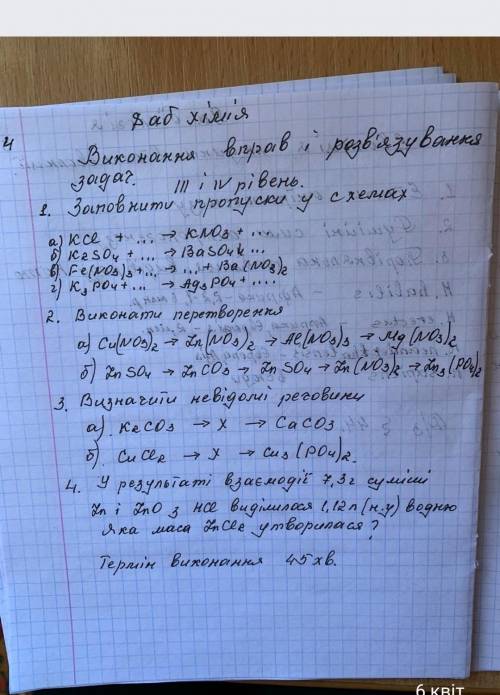 8аб хімія
Ч
Виконання вправ і розв'язування
задач. III і IV рівень.
1. Заповнити пропуски у схемах
а) KCl + ... → KNO3 + ...
б) K2SO4 + ... → BaSO4 + ...
в) Fe(NO3)3 + ... → ... + Ba(NO3)2
г) K3PO4 + ... → Ag3PO4 + ....
2. Виконати перетворення
а) Cu(NO3)2 → Zn(NO3)2 → Al(NO3)3 → Mg(NO3)2
б) ZnSO4 → ZnCO3 → ZnSO4 → Zn(NO3)2 → Zn3(PO4)2
3. Визначити невідомі речовини
а) K2CO3 → X → CaCO3
б) CuCl2 → X → Cu3(PO4)2.
4. У результаті взаємодії 7,3г суміші
Zn і ZnO з HCl виділилося 1,12л (н.у) водню
Яка маса ZnCl2 утворилася?
Термін виконання 45хв.
6 квіт